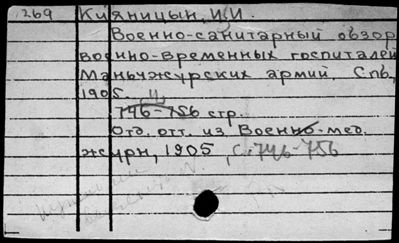 269 Кияницын, И.И.
Военно-санитарный обзор
военно-временных госпиталей
Маньчжурских армий, Спб,
1905.
746-756 стр.
Отд. отт. из Военно-мед.
журн, 1905, с. 746-756